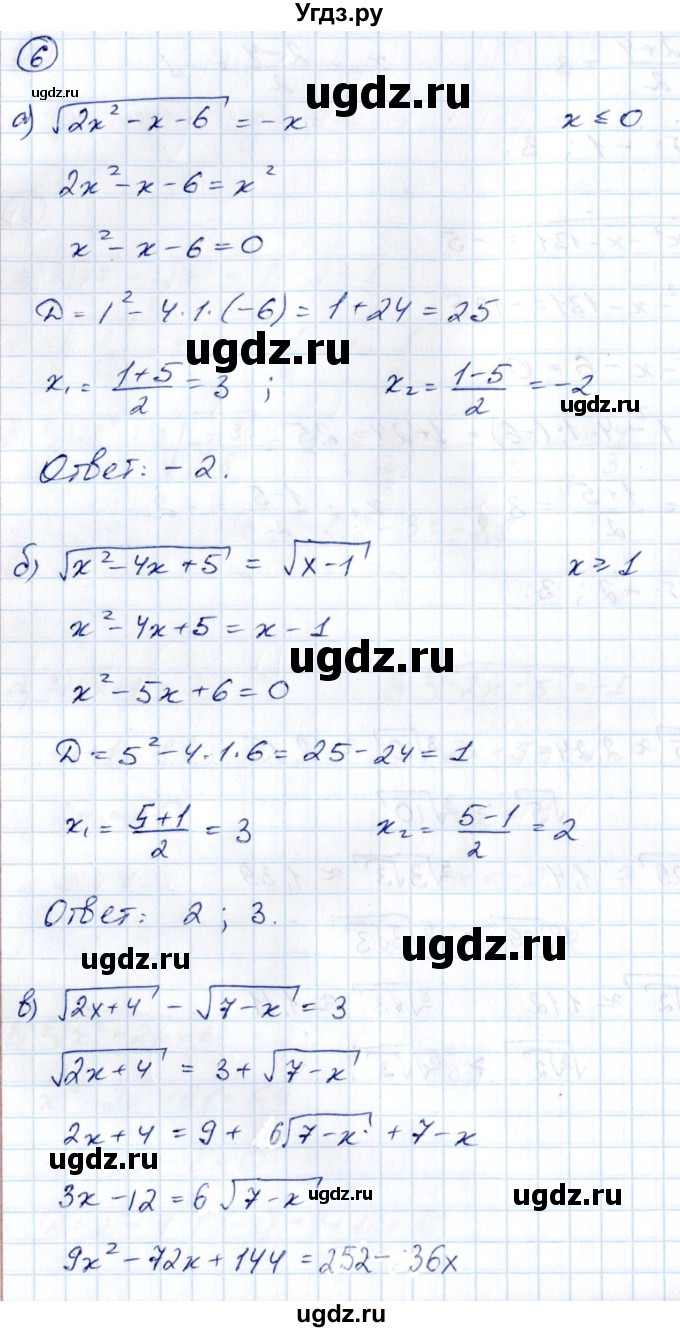 Угдз.ру
6
ugdz.ru
ugdz.ru
а) √(2x² - x - 6) = -x x ≤ 0
2x² - x - 6 = x²
x² - x - 6 = 0
D = 1² - 4·1·(-6) = 1 + 24 = 25
ugdz.ru
x₁ = (1+5)/2 = 3 ; x₂ = (1-5)/2 = -2
ugdz.ru
Ответ: -2.
б) √(x² - 4x + 5) = √(x - 1) x ≥ 1
x² - 4x + 5 = x - 1
ugdz.ru
x² - 5x + 6 = 0
D = 5² - 4·1·6 = 25 - 24 = 1
x₁ = (5+1)/2 = 3 x₂ = (5-1)/2 = 2
Ответ: 2 ; 3.
ugdz.ru
ugdz.ru
в) √(2x+4) - √(7-x) = 3
√(2x+4) = 3 + √(7-x)
2x + 4 = 9 + 6√(7-x) + 7 - x
ugdz.ru
3x - 12 = 6√(7-x)
ugdz.ru
ugdz.ru
9x² - 72x + 144 = 252 - 36x
ugdz.ru